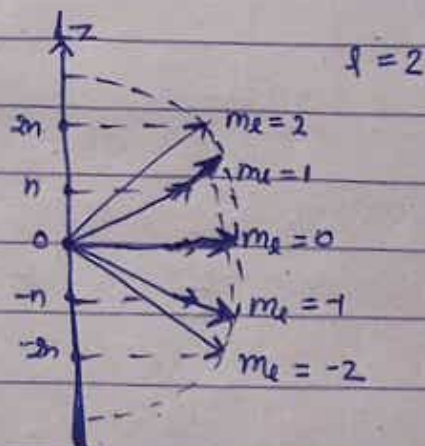 z
l = 2
2ħ
mℓ = 2
mℓ = 1
ħ
0
mℓ = 0
-ħ
mℓ = -1
-2ħ
mℓ = -2